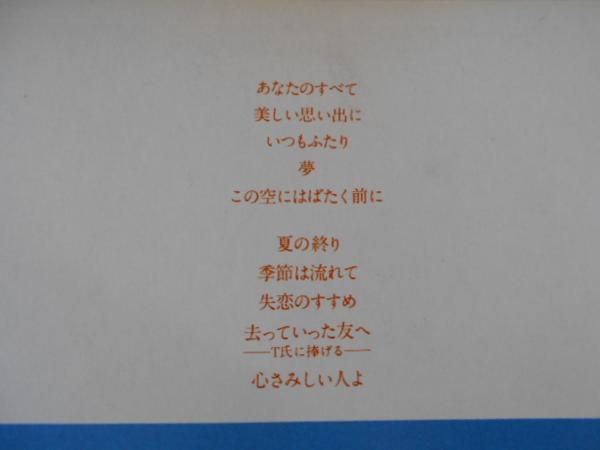 あなたのすべて
美しい思い出に
いつもふたり
夢
この空にはばたく前に
夏の終り
季節は流れて
失恋のすすめ
去っていった友へ
──T氏に捧げる──
心さみしい人よ